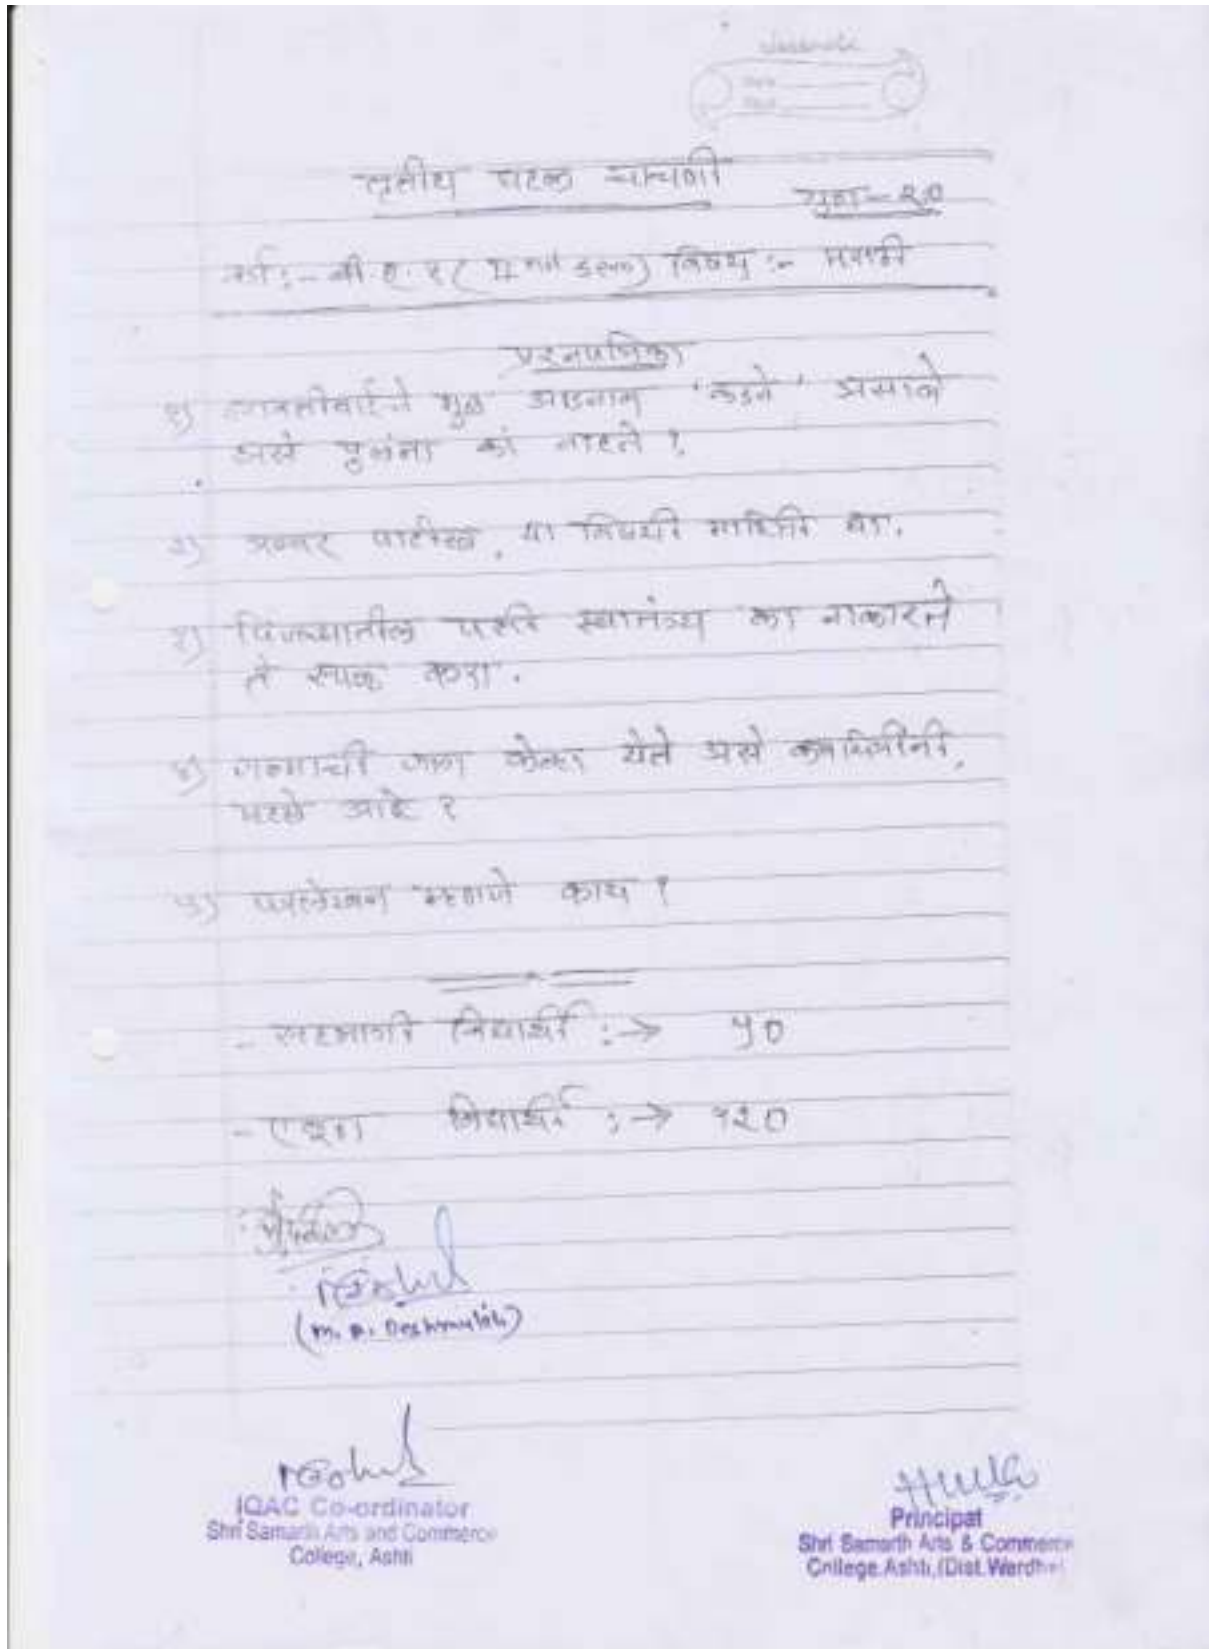 तृतीय घटक चाचणी
गुण-२०
वर्ग:- बी.ए. १ ( II nd sem) विषय :- मराठी
प्रश्नपत्रिका
१) मुळ आडनाव 'कडने' असावे
असे पुलंना का वाटते ?
२) अब्बर पाटील, या विषयी माहिती द्या.
३) पिंजऱ्यातील पक्षी स्वातंत्र्य का नाकारते
ते स्पष्ट करा.
४) जाग केव्हा येते असे कवयित्रीनी,
आहे ?
५) पत्रलेखन म्हणजे काय ?
- सहभागी विद्यार्थी :→ ५०
- एकूण विद्यार्थी :→ १२०
(M. R. Deshmukh)
IQAC Co-ordinator
Shri Samarth Arts and Commerce
College, Ashti
Principal
Shri Samarth Arts & Commerce
College.Ashti,(Dist.Wardha)